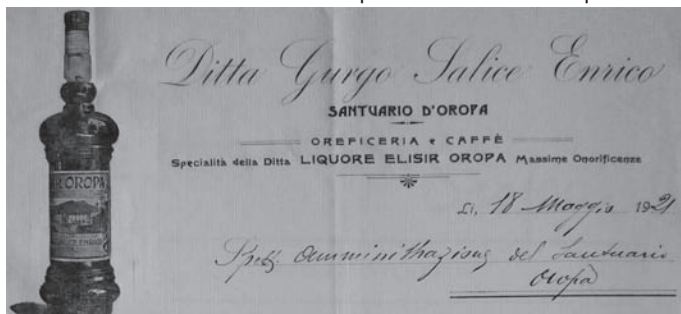 Ditta Gurgo Salice Enrico
SANTUARIO D'OROPA
OREFICERIA e CAFFÈ
Specialità della Ditta LIQUORE ELISIR OROPA Massime Onorificenze
Li, 18 Maggio 1921
Spett. Amministrazione del Santuario
Oropa
OROPA